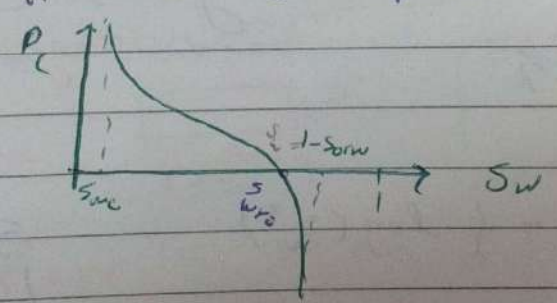 Pc
Sw = 1-Sorw
Swc
Swro
1
Sw